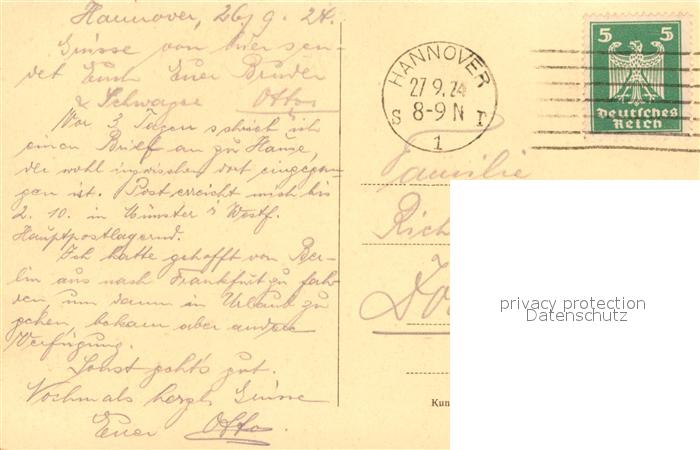 Hannover, 26/9. 24.
Grüsse von hier sen-
det Euch Euer Bruder
& Schwager Otto
Vor 3 Tagen schrieb ich
einen Brief an zu Hause,
der wohl inzwischen dort eingegan-
gen ist. Post erreicht mich bis
2. 10. in Münster i/ Westf.
Hauptpostlagernd.
Ich hatte gehofft von Ber-
lin aus nach Frankfurt zu fah-
ren, um dann in Urlaub zu
gehen, bekam aber andere
Verfügung.
Sonst geht's gut.
Nochmals herzl. Grüsse
Euer Otto.
HANNOVER
27 9. 24
S 8-9 N I
1
5 5
Deutsches
Reich
Familie
Rich
Kun
privacy protection
Datenschutz